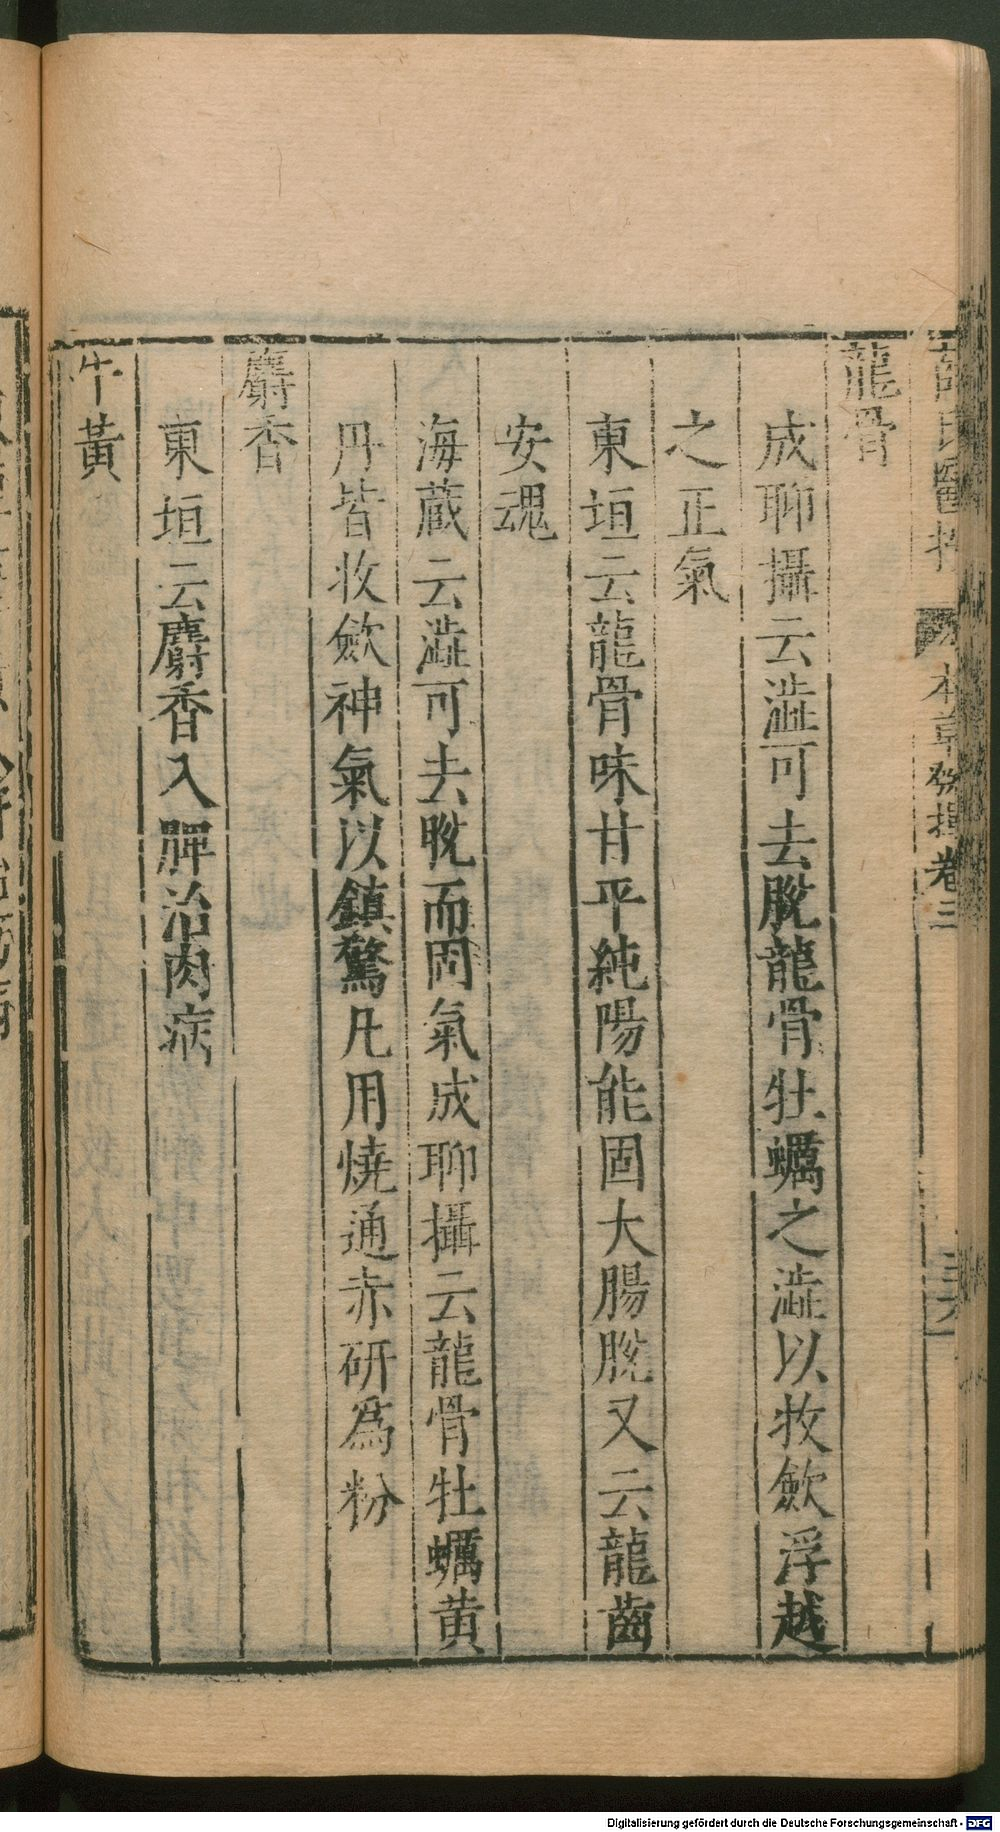 龍骨
成聊攝云澁可去脫龍骨牡蠣之澁以收歛浮越
之正氣
東垣云龍骨味甘平純陽能固大腸脫又云龍齒
安魂
海藏云澁可去脫而固氣成聊攝云龍骨牡蠣黄
丹皆收歛神氣以鎮驚凡用燒通赤研爲粉
麝香
東垣云麝香入脾治肉病
牛黃
本草發揮卷三
Digitalisierung gefördert durch die Deutsche Forschungsgemeinschaft - DFG